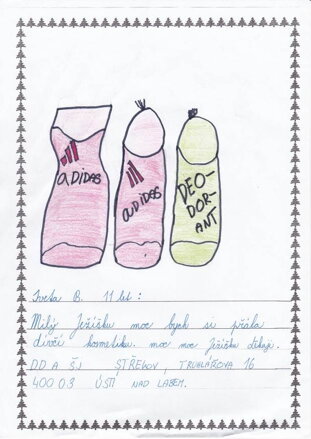 adidas
adidas
DEO-
DOR-
ANT
Iveta B. 11 let:
Milý Ježíšku moc bych si přála
dívčí kosmetiku. moc moc Ježíšku děkuji.
DD A ŠJ STŘEKOV, TRUHLÁŘOVA 16
400 03 ÚSTÍ NAD LABEM.